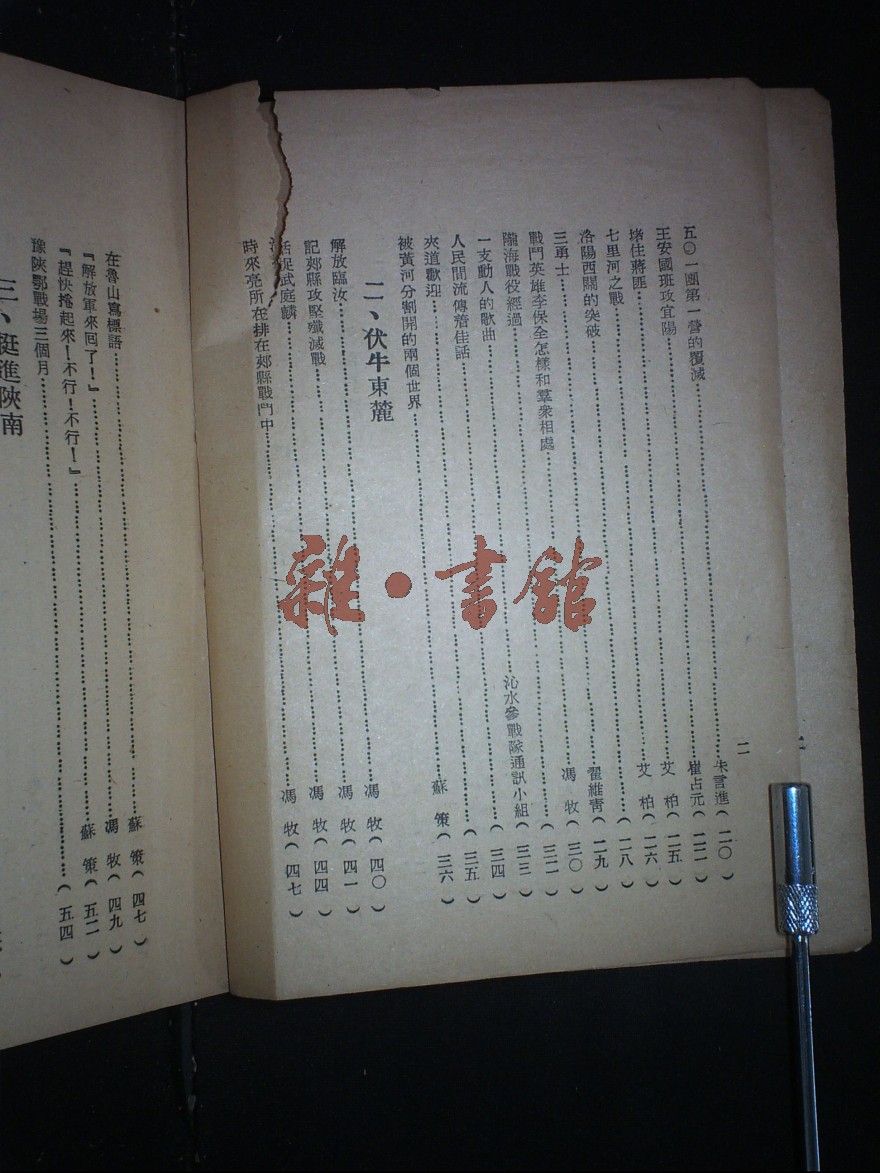 二
五〇一團第一營的覆滅……朱言進（二〇）
王安國班攻宜陽……崔占元（二二）
堵住蔣匪……艾 柏（二五）
七里河之戰……艾 柏（二六）
洛陽西關的突破……（二八）
三勇士……翟維靑（二九）
戰鬥英雄李保全怎樣和羣衆相處……馮 牧（三〇）
隴海戰役經過……（三二）
一支動人的歌曲……沁水參戰隊通訊小組（三三）
人民間流傳着佳話……（三四）
夾道歡迎……（三五）
被黃河分割開的兩個世界……蘇 策（三六）
二、伏牛東麓
解放臨汝……馮 牧（四〇）
記郟縣攻堅殲滅戰……馮 牧（四一）
活捉武庭麟……馮 牧（四四）
……馮 牧（四七）
時來亮所在排在郟縣戰鬥中
在魯山寫標語……蘇 策（四七）
『解放軍來回了！』……馮 牧（四九）
『趕快捲起來！不行！不行！』……蘇 策（五二）
豫陝鄂戰場三個月……（五四）
三、挺進陝南
雜·書館